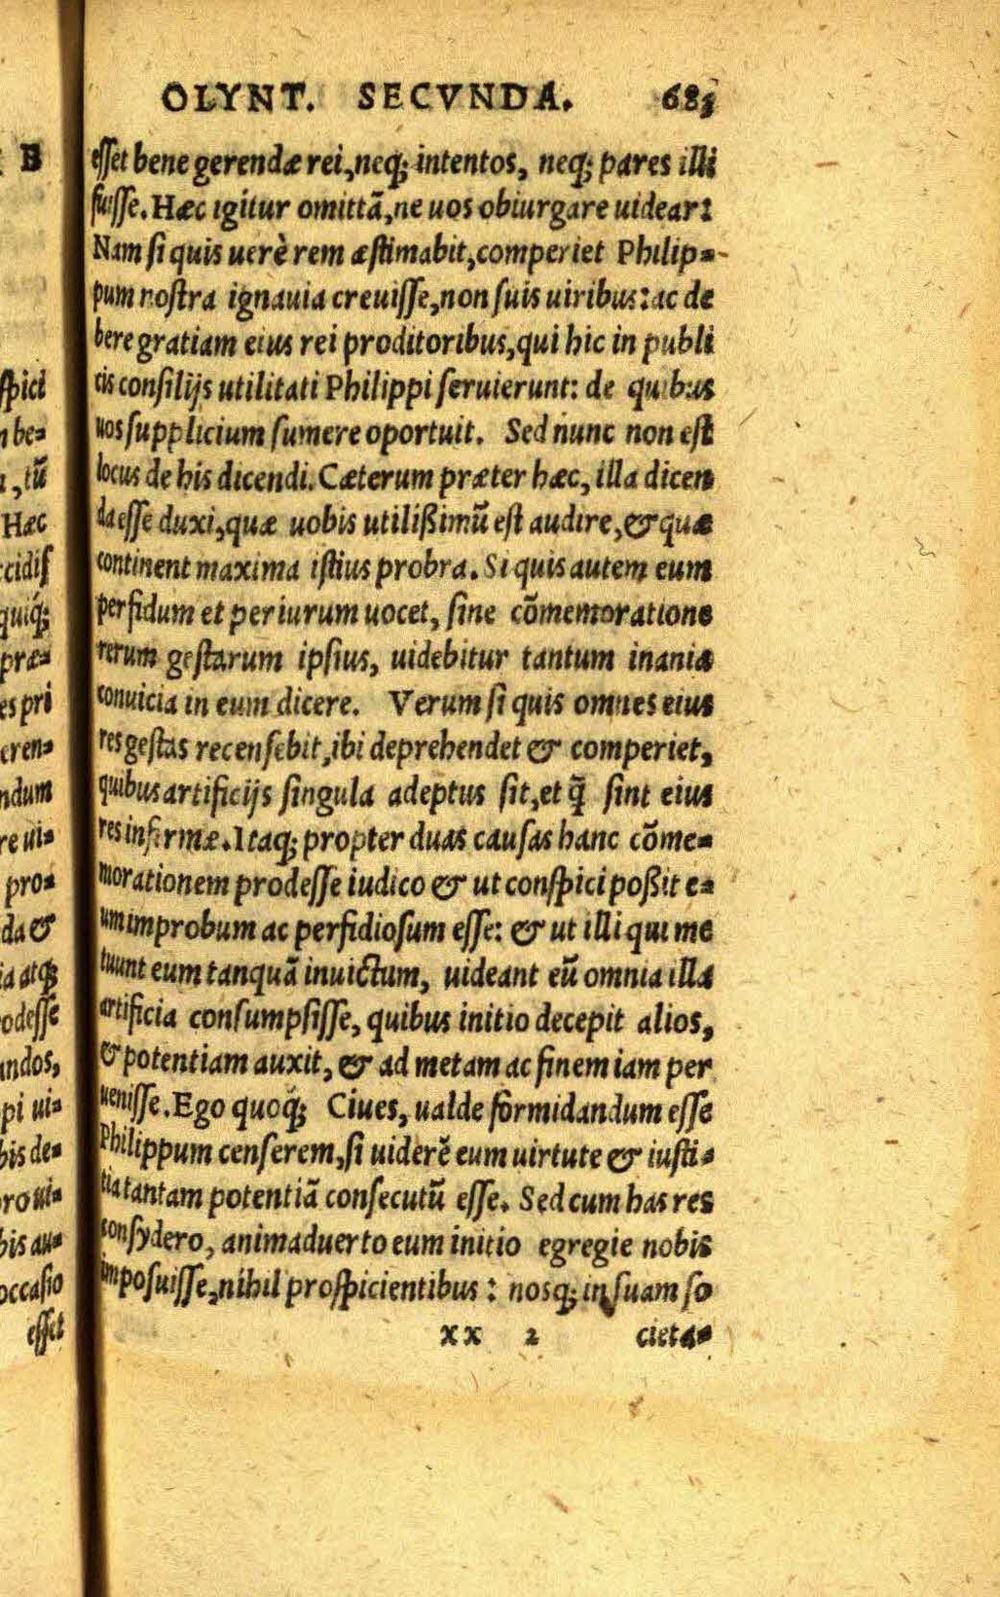 OLYNT. SECVNDA. 683
esset bene gerendæ rei, neq; intentos, neq; pares illi
fuisse. Hæc igitur omittā, ne uos obiurgare uidear:
Nam si quis uerè rem æstimabit, comperiet Philip-
pum nostra ignauia creuisse, non suis uiribus: ac de
bere gratiam eius rei proditoribus, qui hic in publi
cis consilijs utilitati Philippi seruierunt: de quibus
uos supplicium sumere oportuit. Sed nunc non est
locus de his dicendi. Cæterum præter hæc, illa dicen
da esse duxi, quæ uobis utilißimū est audire, & quæ
continent maxima istius probra. Si quis autem eum
perfidum et periurum uocet, sine cōmemoratione
rerum gestarum ipsius, uidebitur tantum inania
conuicia in eum dicere. Verum si quis omnes eius
res gestas recensebit, ibi deprehendet & comperiet,
quibus artificijs singula adeptus sit, et q̄ sint eius
res infirmæ. Itaq; propter duas causas hanc cōme-
morationem prodesse iudico & ut conspici poßit e-
um improbum ac perfidiosum esse: & ut illi qui me
tuunt eum tanquā inuictum, uideant eū omnia illa
artificia consumpsisse, quibus initio decepit alios,
& potentiam auxit, & ad metam ac finem iam per
uenisse. Ego quoq; Ciues, ualde formidandum esse
Philippum censerem, si uiderē eum uirtute & iusti-
tia tantam potentiā consecutū esse. Sed cum has res
consydero, animaduerto eum initio egregie nobis
imposuisse, nihil prospicientibus: nosq; in suam so
xx 2 cieta-
B
spici
be-
, tū
Hæc
cidis
quiq;
præ-
es pri
cren-
ndum
re ui-
pro-
da &
ia atq;
odesse
indos,
pi ui-
bis de-
ro ui-
bis au-
occasio
esset